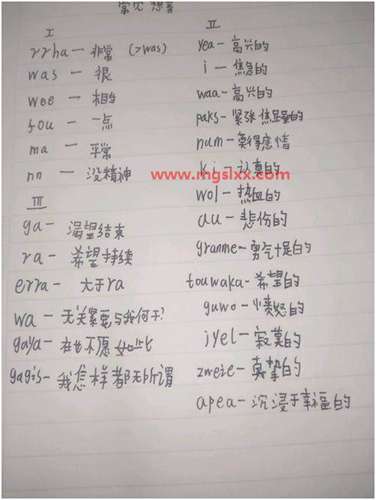 常见想音
I
rrha — 非常 (>was)
was — 很
wee — 相当
fou — 一点
ma — 平常
nn — 没精神
III
ga — 渴望结束
ra — 希望持续
erra — 大于ra
wa — 无关紧要与我何干?
gaya — 再也不愿如此
gagis — 我怎样都无所谓
II
yea — 高兴的
i — 焦急的
waa — 高兴的
paks — 紧张焦虑的
num — 莫得感情
ki — 认真的
www.mgslxx.com
wol — 热血的
au — 悲伤的
granme — 勇气十足的
touwaka — 希望的
guwo — 愤怒的
iyel — 寂寞的
zweie — 真挚的
apea — 沉浸于幸福的